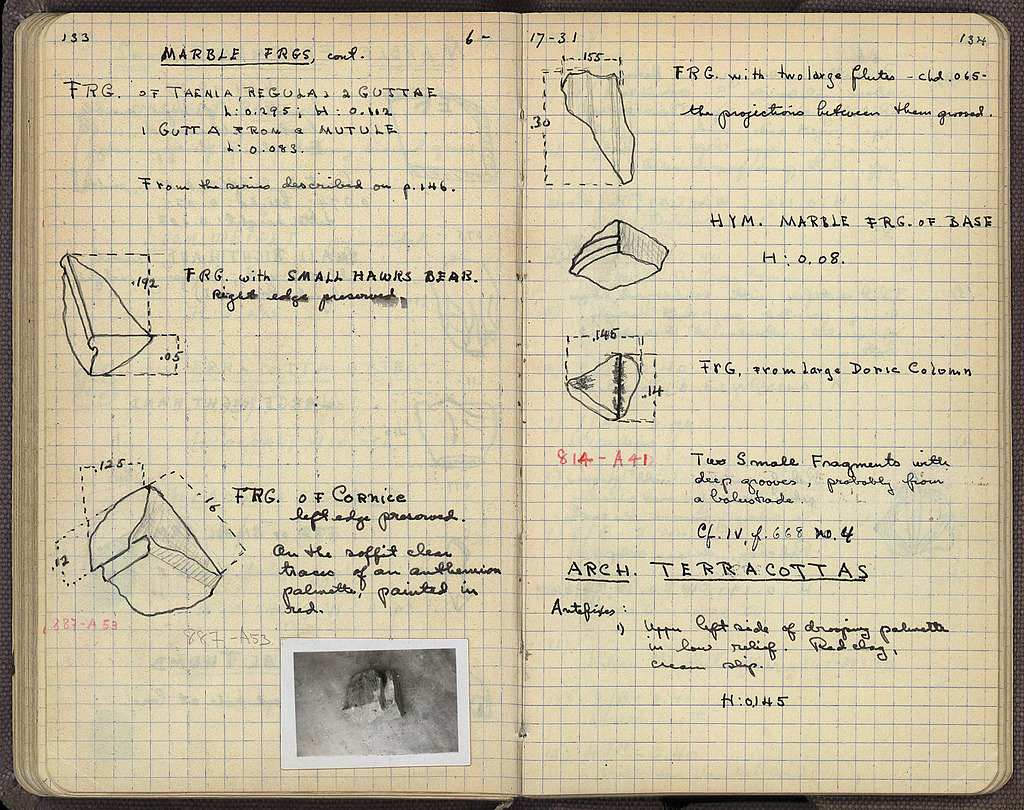 133
6-
MARBLE FRGS, cont.
FRG. OF TAENIA, REGULA, 2 GUTTAE
L: 0.295; H: 0.102
1 GUTTA FROM a MUTULE
L: 0.083.
From the series described on p. 146.
.192
.05
FRG. with SMALL HAWKS BEAK.
Right edge preserved.
.125
.16
.12
FRG. OF CORNICE
left edge preserved.
On the soffit clear
traces of an anthemion
palmette, painted in
red.
887-A53
887-A53
17-31
134
.155
.30
FRG. with two large flutes - chd .065-
the projections between them grooved.
HYM. MARBLE FRG. OF BASE
H: 0.08.
.145
.14
FRG. From large Doric Column
814-A41
Two Small Fragments with
deep grooves, probably from
a balustrade.
Cf. IV, p. 668 no. 4
ARCH. TERRACOTTAS
Antefixes:
1) Upper left side of drooping palmette
in low relief. Red clay,
cream slip.
H: 0.145